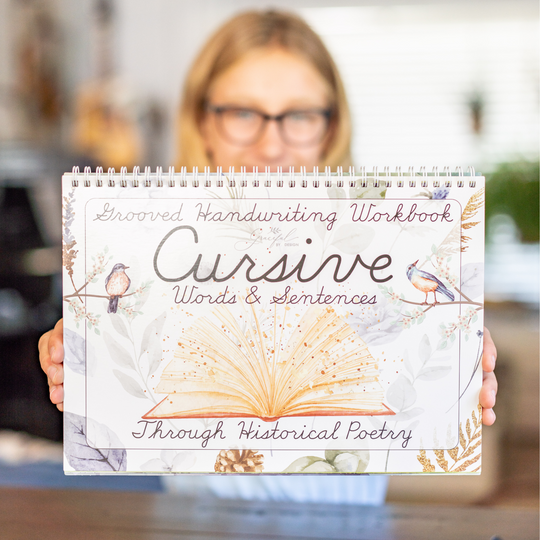 Grooved Handwriting Workbook
Cursive
Words & Sentences
Through Historical Poetry